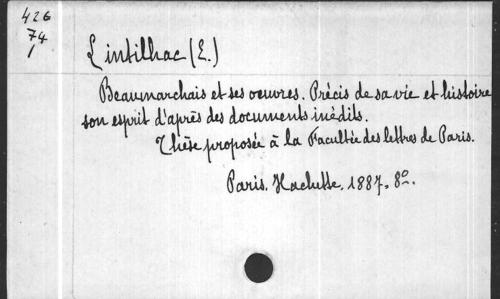 426
74
1
Lintilhac (E.)
Beaumarchais et ses oeuvres. Précis de sa vie et histoire
son esprit d'après des documents inédits.
Thèse proposée à la Facultée des lettres de Paris.
Paris. Hachette. 1887. 8º.